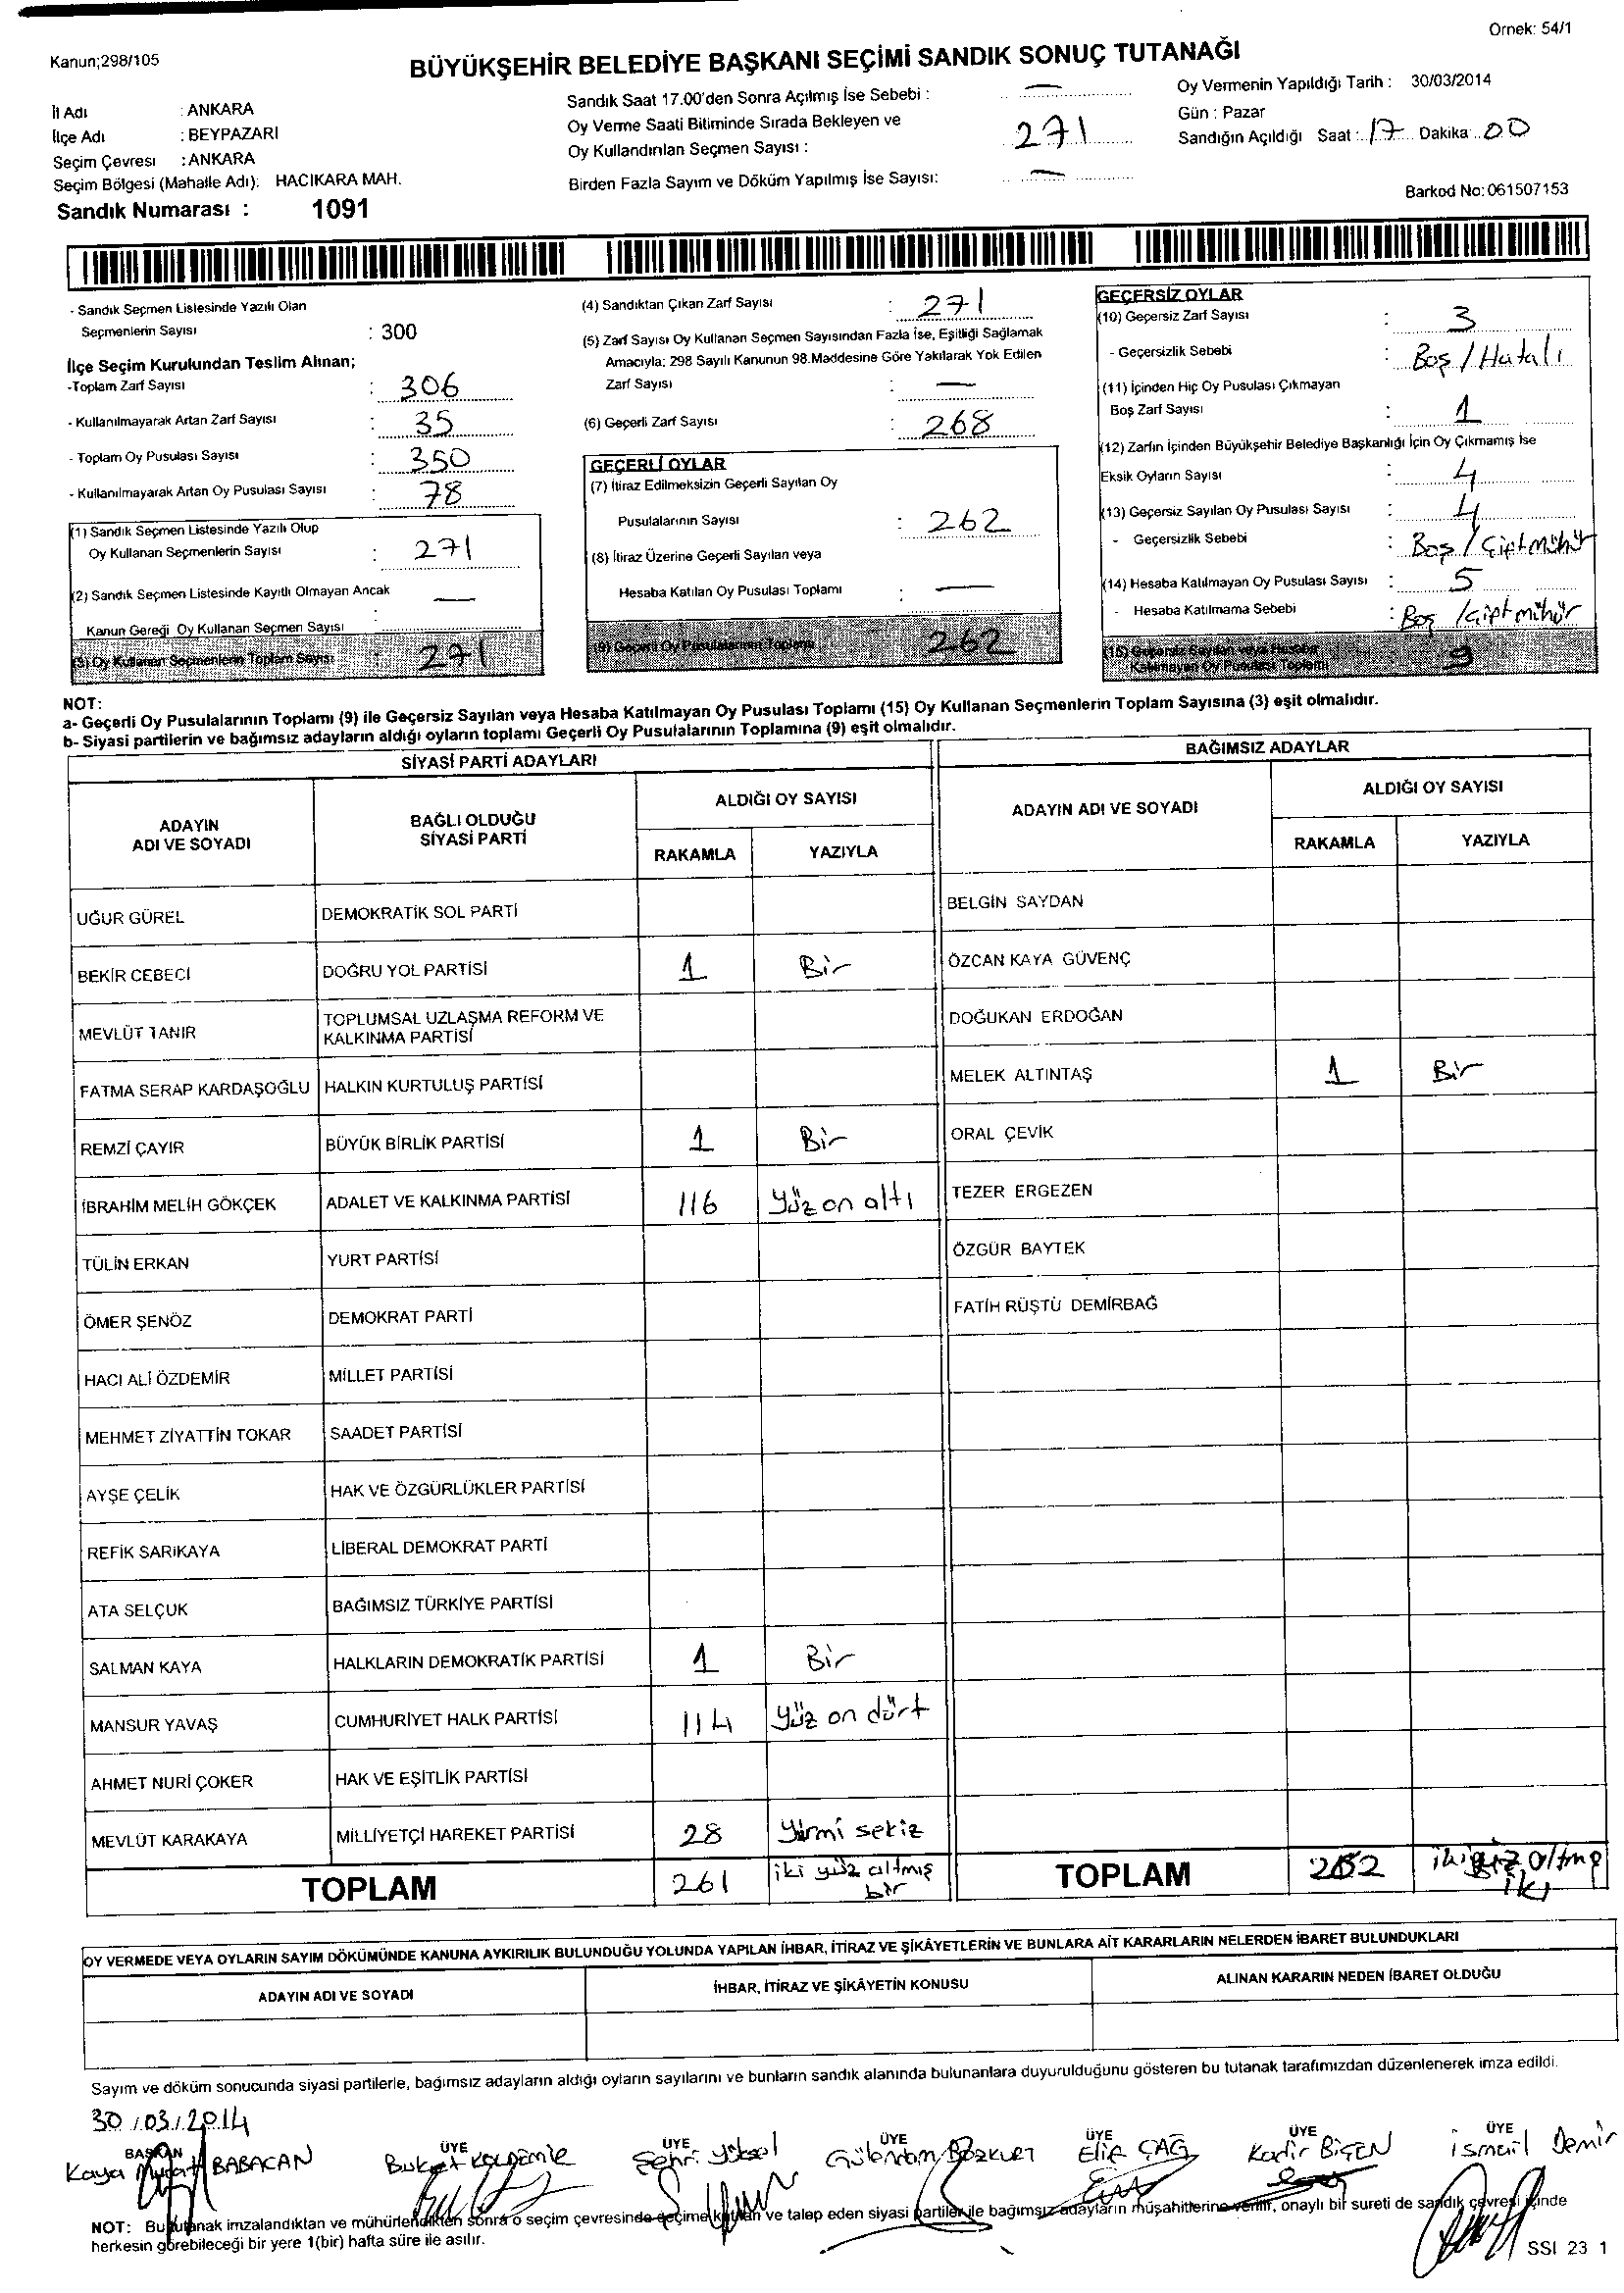 Örnek: 54/1
Kanun;298/105
BÜYÜKŞEHİR BELEDİYE BAŞKANI SEÇİMİ SANDIK SONUÇ TUTANAĞI
İl Adı : ANKARA
İlçe Adı : BEYPAZARI
Seçim Çevresi : ANKARA
Seçim Bölgesi (Mahalle Adı): HACIKARA MAH.
Sandık Numarası : 1091
Sandık Saat 17.00'den Sonra Açılmış İse Sebebi : —
Oy Verme Saati Bitiminde Sırada Bekleyen ve
Oy Kullandırılan Seçmen Sayısı : 271
Birden Fazla Sayım ve Döküm Yapılmış İse Sayısı: —
Oy Vermenin Yapıldığı Tarih : 30/03/2014
Gün : Pazar
Sandığın Açıldığı Saat : 17 Dakika 00
Barkod No: 061507153
- Sandık Seçmen Listesinde Yazılı Olan
Seçmenlerin Sayısı : 300
İlçe Seçim Kurulundan Teslim Alınan;
-Toplam Zarf Sayısı : 306
- Kullanılmayarak Artan Zarf Sayısı : 35
- Toplam Oy Pusulası Sayısı : 350
- Kullanılmayarak Artan Oy Pusulası Sayısı : 78
(1) Sandık Seçmen Listesinde Yazılı Olup
Oy Kullanan Seçmenlerin Sayısı : 271
(2) Sandık Seçmen Listesinde Kayıtlı Olmayan Ancak
Kanun Gereği Oy Kullanan Seçmen Sayısı : —
(3) Oy Kullanan Seçmenlerin Toplam Sayısı : 271
(4) Sandıktan Çıkan Zarf Sayısı : 271
(5) Zarf Sayısı Oy Kullanan Seçmen Sayısından Fazla İse, Eşitliği Sağlamak
Amacıyla; 298 Sayılı Kanunun 98.Maddesine Göre Yakılarak Yok Edilen
Zarf Sayısı : —
(6) Geçerli Zarf Sayısı : 268
GEÇERLİ OYLAR
(7) İtiraz Edilmeksizin Geçerli Sayılan Oy
Pusulalarının Sayısı : 262
(8) İtiraz Üzerine Geçerli Sayılan veya
Hesaba Katılan Oy Pusulası Toplamı : —
(9) Geçerli Oy Pusulalarının Toplamı 262
GEÇERSİZ OYLAR
(10) Geçersiz Zarf Sayısı : 3
- Geçersizlik Sebebi : Boş / Hatalı
(11) İçinden Hiç Oy Pusulası Çıkmayan
Boş Zarf Sayısı : 1
(12) Zarfın İçinden Büyükşehir Belediye Başkanlığı İçin Oy Çıkmamış İse
Eksik Oyların Sayısı : 4
(13) Geçersiz Sayılan Oy Pusulası Sayısı : 4
- Geçersizlik Sebebi : Boş / Çiftmühür
(14) Hesaba Katılmayan Oy Pusulası Sayısı : 5
- Hesaba Katılmama Sebebi : Boş / Çiftmühür
(15) Geçersiz Sayılan veya Hesaba
Katılmayan Oy Pusulası Toplamı 9
NOT:
a- Geçerli Oy Pusulalarının Toplamı (9) ile Geçersiz Sayılan veya Hesaba Katılmayan Oy Pusulası Toplamı (15) Oy Kullanan Seçmenlerin Toplam Sayısına (3) eşit olmalıdır.
b- Siyasi partilerin ve bağımsız adayların aldığı oyların toplamı Geçerli Oy Pusulalarının Toplamına (9) eşit olmalıdır.
SİYASİ PARTİ ADAYLARI
ADAYIN ADI VE SOYADI
BAĞLI OLDUĞU SİYASİ PARTİ
ALDIĞI OY SAYISI
RAKAMLA YAZIYLA
UĞUR GÜREL DEMOKRATİK SOL PARTİ
BEKİR CEBECİ DOĞRU YOL PARTİSİ 1 Bir
MEVLÜT TANIR TOPLUMSAL UZLAŞMA REFORM VE
KALKINMA PARTİSİ
FATMA SERAP KARDAŞOĞLU HALKIN KURTULUŞ PARTİSİ
REMZİ ÇAYIR BÜYÜK BİRLİK PARTİSİ 1 Bir
İBRAHİM MELİH GÖKÇEK ADALET VE KALKINMA PARTİSİ 116 Yüz on altı
TÜLİN ERKAN YURT PARTİSİ
ÖMER ŞENÖZ DEMOKRAT PARTİ
HACI ALİ ÖZDEMİR MİLLET PARTİSİ
MEHMET ZİYATTİN TOKAR SAADET PARTİSİ
AYŞE ÇELİK HAK VE ÖZGÜRLÜKLER PARTİSİ
REFİK SARIKAYA LİBERAL DEMOKRAT PARTİ
ATA SELÇUK BAĞIMSIZ TÜRKİYE PARTİSİ
SALMAN KAYA HALKLARIN DEMOKRATİK PARTİSİ 1 Bir
MANSUR YAVAŞ CUMHURİYET HALK PARTİSİ 114 Yüz on dört
AHMET NURİ ÇOKER HAK VE EŞİTLİK PARTİSİ
MEVLÜT KARAKAYA MİLLİYETÇİ HAREKET PARTİSİ 28 Yirmi sekiz
TOPLAM 261 iki yüz altmış bir
BAĞIMSIZ ADAYLAR
ADAYIN ADI VE SOYADI
ALDIĞI OY SAYISI
RAKAMLA YAZIYLA
BELGİN SAYDAN
ÖZCAN KAYA GÜVENÇ
DOĞUKAN ERDOĞAN
MELEK ALTINTAŞ 1 Bir
ORAL ÇEVİK
TEZER ERGEZEN
ÖZGÜR BAYTEK
FATİH RÜŞTÜ DEMİRBAĞ
TOPLAM 262 iki yüz altmış iki
OY VERMEDE VEYA OYLARIN SAYIM DÖKÜMÜNDE KANUNA AYKIRILIK BULUNDUĞU YOLUNDA YAPILAN İHBAR, İTİRAZ VE ŞİKÂYETLERİN VE BUNLARA AİT KARARLARIN NELERDEN İBARET BULUNDUKLARI
ADAYIN ADI VE SOYADI İHBAR, İTİRAZ VE ŞİKÂYETİN KONUSU ALINAN KARARIN NEDEN İBARET OLDUĞU
Sayım ve döküm sonucunda siyasi partilerle, bağımsız adayların aldığı oyların sayılarını ve bunların sandık alanında bulunanlara duyurulduğunu gösteren bu tutanak tarafımızdan düzenlenerek imza edildi.
30/03/2014
BAŞKAN ÜYE ÜYE ÜYE ÜYE ÜYE ÜYE
Kaya Murat BABACAN Şehri Yüksel Gülendam Bozkurt Elif ÇAĞ Kadir BİÇEN İsmail Demir
NOT: Bu tutanak imzalandıktan ve mühürlendikten sonra o seçim çevresinde seçime katılan ve talep eden siyasi partiler ile bağımsız adayların müşahitlerine verilir, onaylı bir sureti de sandık çevresi içinde
herkesin görebileceği bir yere 1(bir) hafta süre ile asılır.
SSI 23 1